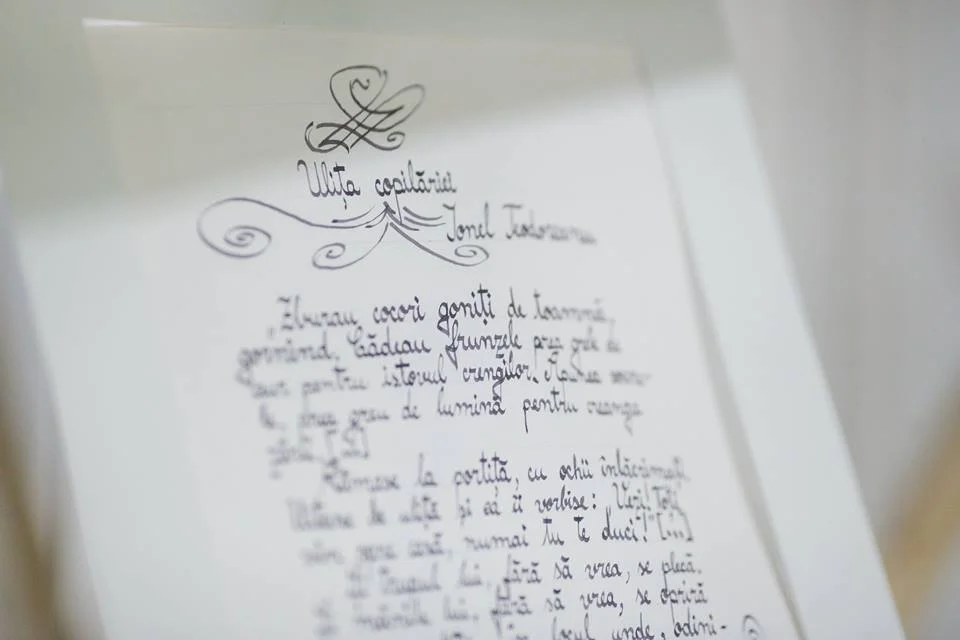 Ulița copilăriei
Ionel Teodoreanu
„Zburau cocori goniți de toamnă,
gornind. Cădeau frunzele prea grele de
aur pentru istovul crengilor. Apunea soare-
le, prea greu de lumină pentru creanga
[...]
Rămase la portiță, cu ochii înlăcrimați.
de uliță și ea îi vorbise: „Vezi! Toți
vin spre casă, numai tu te duci!" [...]
Și trupul lui, fără să vrea, se plecă.
Și mâinile lui, fără să vrea, se opriră
în locul unde, odini-